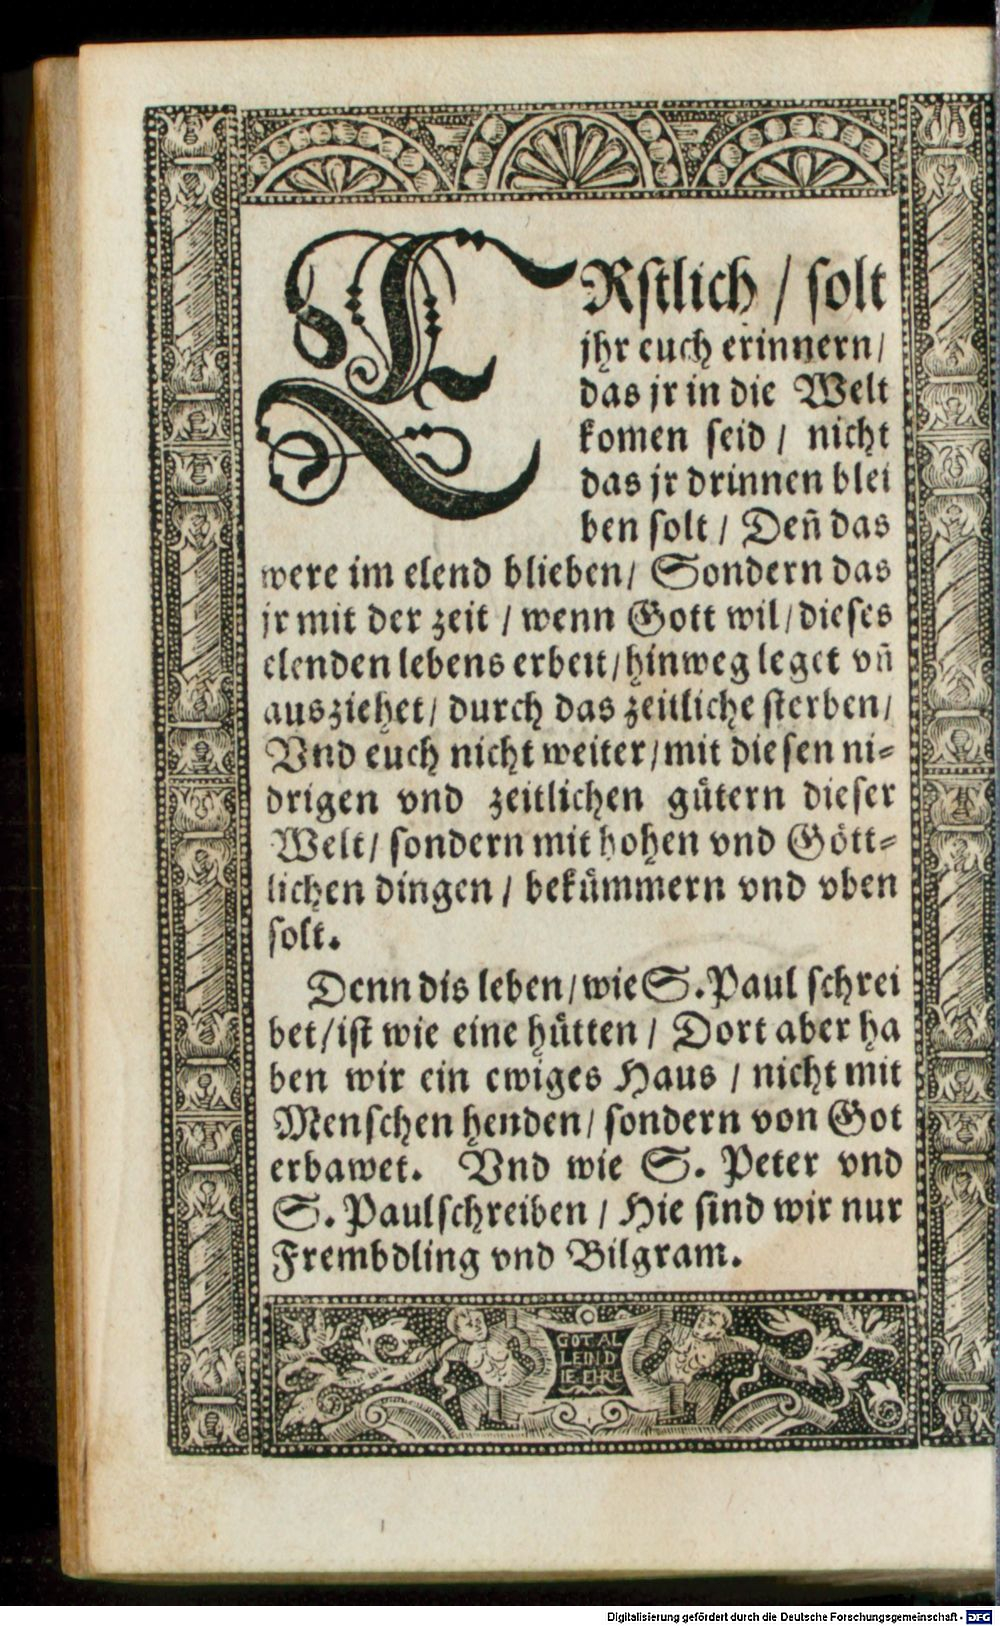 ERstlich / solt
jhr euch erinnern /
das jr in die Welt
komen seid / nicht
das jr drinnen blei
ben solt / Deñ das
were im elend blieben / Sondern das
jr mit der zeit / wenn Gott wil / dieses
elenden lebens erbeit / hinweg leget vñ
ausziehet / durch das zeitliche sterben /
Vnd euch nicht weiter / mit diesen ni-
drigen vnd zeitlichen gütern dieser
Welt / sondern mit hohen vnd Gött-
lichen dingen / bekümmern vnd vben
solt.
Denn dis leben / wie S. Paul schrei
bet / ist wie eine hütten / Dort aber ha
ben wir ein ewiges Haus / nicht mit
Menschen henden / sondern von Got
erbawet. Vnd wie S. Peter vnd
S. Paul schreiben / Hie sind wir nur
Frembdling vnd Bilgram.
GOT AL
LEIN D
IE EHRE
Digitalisierung gefördert durch die Deutsche Forschungsgemeinschaft - DFG